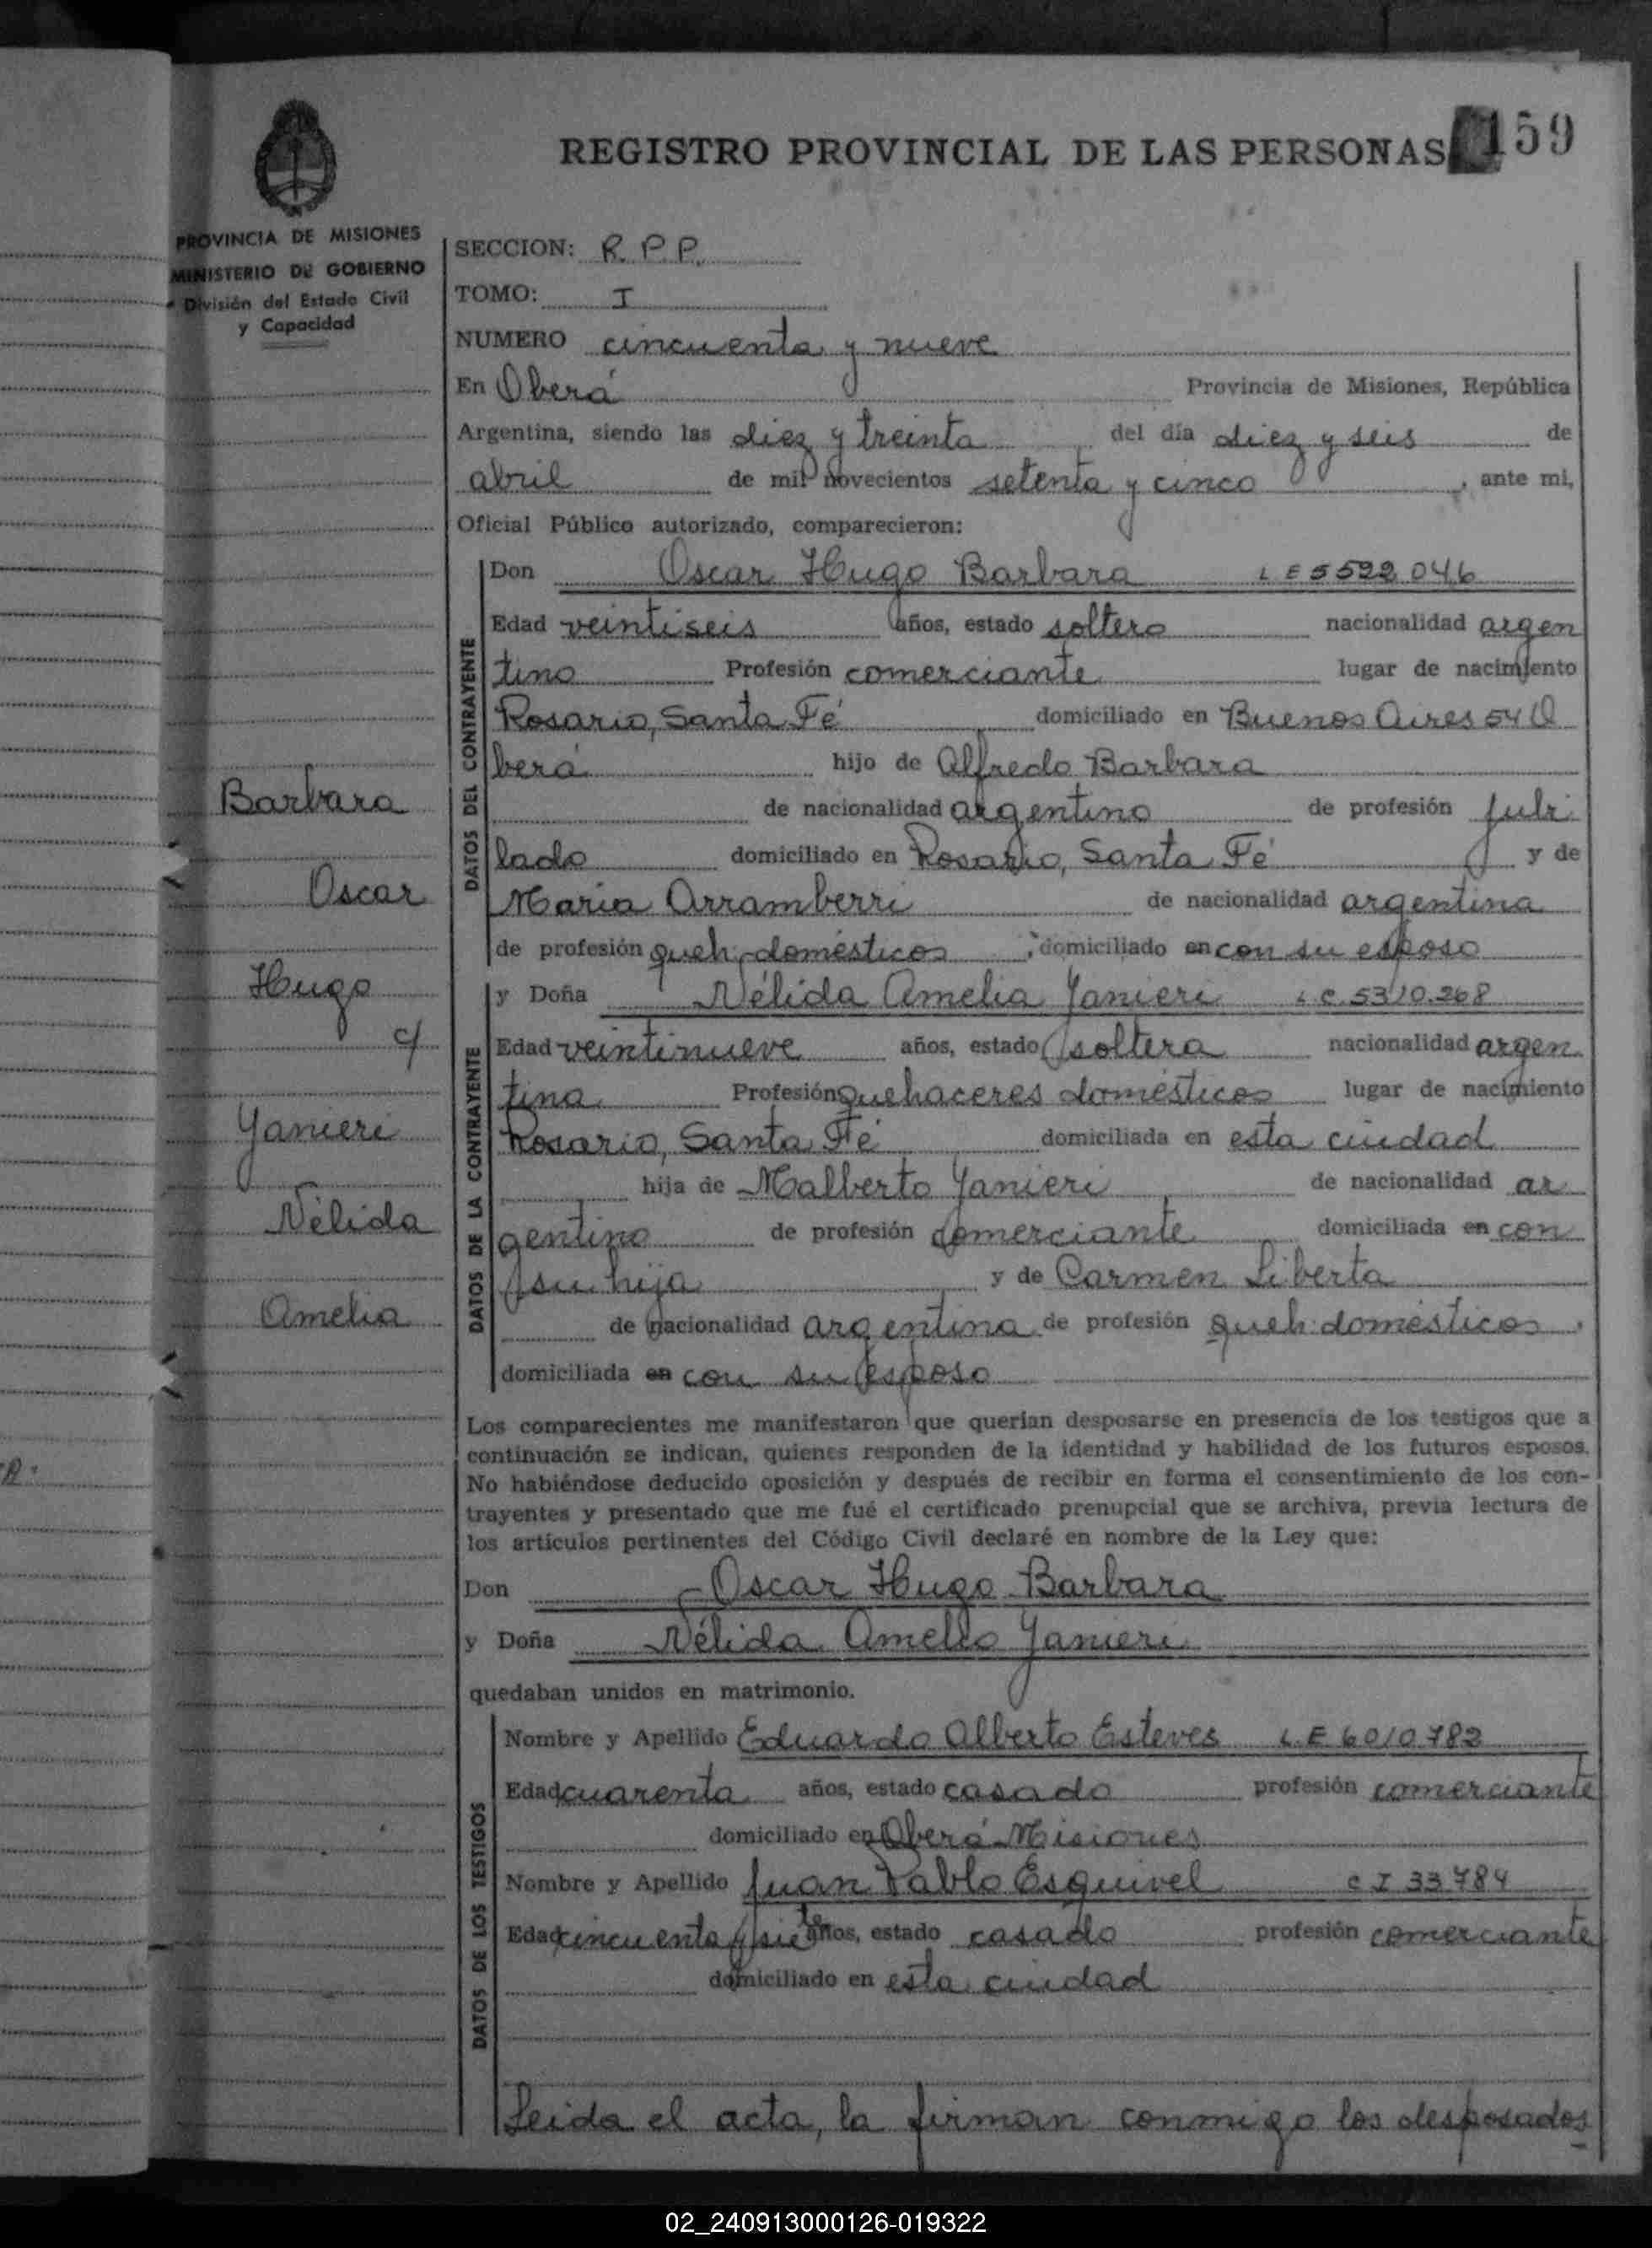 REGISTRO PROVINCIAL DE LAS PERSONAS 159
PROVINCIA DE MISIONES
MINISTERIO DE GOBIERNO
División del Estado Civil
y Capacidad
SECCION: R.P.P.
TOMO: I
NUMERO cincuenta y nueve
En Oberá Provincia de Misiones, República
Argentina, siendo las diez y treinta del día diez y seis de
abril de mil novecientos setenta y cinco, ante mi,
Oficial Público autorizado, comparecieron:
DATOS DEL CONTRAYENTE
Don Oscar Hugo Barbara L E 5522.046
Edad veintiseis años, estado soltero nacionalidad argen
tino Profesión comerciante lugar de nacimiento
Rosario, Santa Fé domiciliado en Buenos Aires 54 O
berá hijo de Alfredo Barbara
de nacionalidad argentino de profesión jubi
lado domiciliado en Rosario, Santa Fé y de
Maria Arramberri de nacionalidad argentina
de profesión queh. domésticos domiciliado en con su esposo
DATOS DE LA CONTRAYENTE
y Doña Nélida Amelia Yanieri L.C. 5310.268
Edad veintinueve años, estado soltera nacionalidad argen
tina Profesión quehaceres domésticos lugar de nacimiento
Rosario, Santa Fé domiciliada en esta ciudad
hija de Malberto Yanieri de nacionalidad ar
gentino de profesión comerciante domiciliada en con
su hija y de Carmen Liberta
de nacionalidad argentina de profesión queh. domésticos.
domiciliada en con su esposo
Barbara
Oscar
Hugo
c/
Yanieri
Nélida
Amelia
Los comparecientes me manifestaron que querían desposarse en presencia de los testigos que a
continuación se indican, quienes responden de la identidad y habilidad de los futuros esposos.
No habiéndose deducido oposición y después de recibir en forma el consentimiento de los con-
trayentes y presentado que me fué el certificado prenupcial que se archiva, previa lectura de
los artículos pertinentes del Código Civil declaré en nombre de la Ley que:
Don Oscar Hugo Barbara
y Doña Nélida Amelia Yanieri
quedaban unidos en matrimonio.
DATOS DE LOS TESTIGOS
Nombre y Apellido Eduardo Alberto Esteves L.E 6010782
Edad cuarenta años, estado casado profesión comerciante
domiciliado en Oberá-Misiones
Nombre y Apellido Juan Pablo Esquivel C I 33.784
Edad cincuenta y siete años, estado casado profesión comerciante
domiciliado en esta ciudad
Leida el acta, la firman conmigo los desposados
02_240913000126-019322